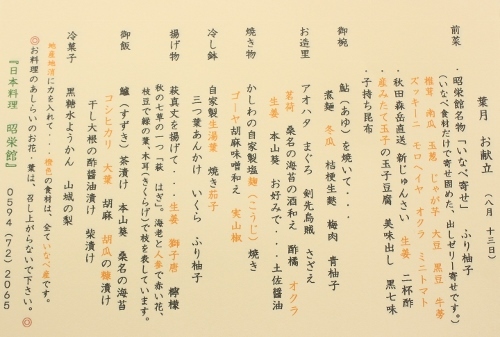 葉月　お献立　（八月　十三日）
前菜　・昭栄館名物「いなべ寄せ」　ふり柚子
（いなべ食材だけで寄せ固めた、出しゼリー寄せです。）
椎茸　南瓜　玉葱　じゃが芋　大豆　黒豆　牛蒡
ズッキーニ　モロヘイヤ　オクラ　ミニトマト
・秋田森岳直送　新じゅんさい　生姜　二杯酢
・産みたて玉子の玉子豆腐　美味出し　黒七味
・子持ち昆布
御椀　鮎（あゆ）を焼いて・・・
煮麺　冬瓜　桔梗生麩　梅肉　青柚子
お造里　アオハタ　まぐろ　剣先烏賊　さざえ
茗荷　桑名の海苔の酒和え　酢橘　オクラ
生姜　本山葵　お好みで・・・土佐醤油
焼き物　かしわの自家製塩麹（こうじ）焼き
ゴーヤ胡麻味噌和え　実山椒
冷し鉢　自家製生湯葉　焼き茄子
三つ葉あんかけ　いくら　ふり柚子
揚げ物　萩真丈を揚げて・・・生姜　獅子唐　檸檬
秋の七草の一つ「萩　はぎ」。海老と人参で赤い花、
枝豆で緑の葉、木耳（きくらげ）で枝を表しています。
御飯　鱸（すずき）茶漬け　本山葵　桑名の海苔
コシヒカリ　大葉　胡麻　胡瓜の糠漬け
干し大根の酢醤油漬け　柴漬け
冷菓子　黒糖水ようかん　山城の梨
地産地消に力を入れて・・・橙色の食材は、全ていなべ産です。
◎お料理のあしらいのお花・葉は、召し上がらないで下さい。◎
『日本料理　昭栄館』　0594（72）2065